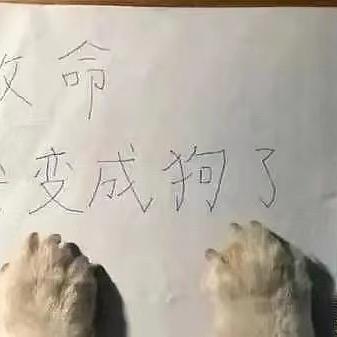 命
变成狗了